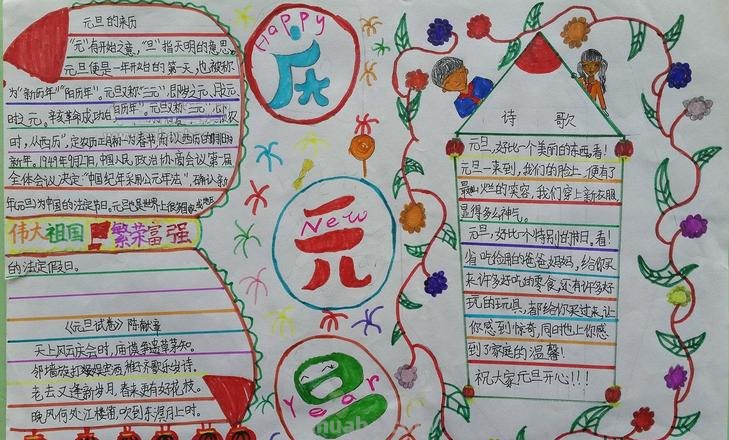 元旦的来历
"元"有开始之意,"旦"指天明的意思。
元旦便是一年开始的第一天,也被称
为"新历年""阳历年"。元旦又称"三元",即岁之元、月之元、
时之元。辛亥革命成功
时,从西历",定农历正月初一为春节,而以西历的
新年。1949年9月27日,中国人民政治协商会议第一届
全体会议决定"中国纪年采用公元年法",确认新
年元旦为中国的法定节日。元旦也是世界上很多国家
伟大祖国 繁荣富强
的法定假日。
《元旦试卷》 陈献章
天上风云庆会时,庙谟争遣草茅知。
邻墙旋打娱宾酒,稚子齐歌乐岁诗。
老去又逢新岁月,春来更有好花枝。
晚风何处江楼笛,吹到东溟月上时。
Happy
庆
New
元
Year
旦
诗 歌
元旦,好比一个美丽的东西,看!
元旦一来到,我们的脸上,便有了
最灿烂的笑容,我们穿上新衣服,
显得多么神气。
元旦,好比个特别的节日,看!
省吃俭用的爸爸妈妈,给你买
来许多好吃的零食,还有许多好
玩的玩具,都给你买过来,让
你感到惊奇,同时也上你感
到了家庭的温馨!
祝大家元旦开心!!!